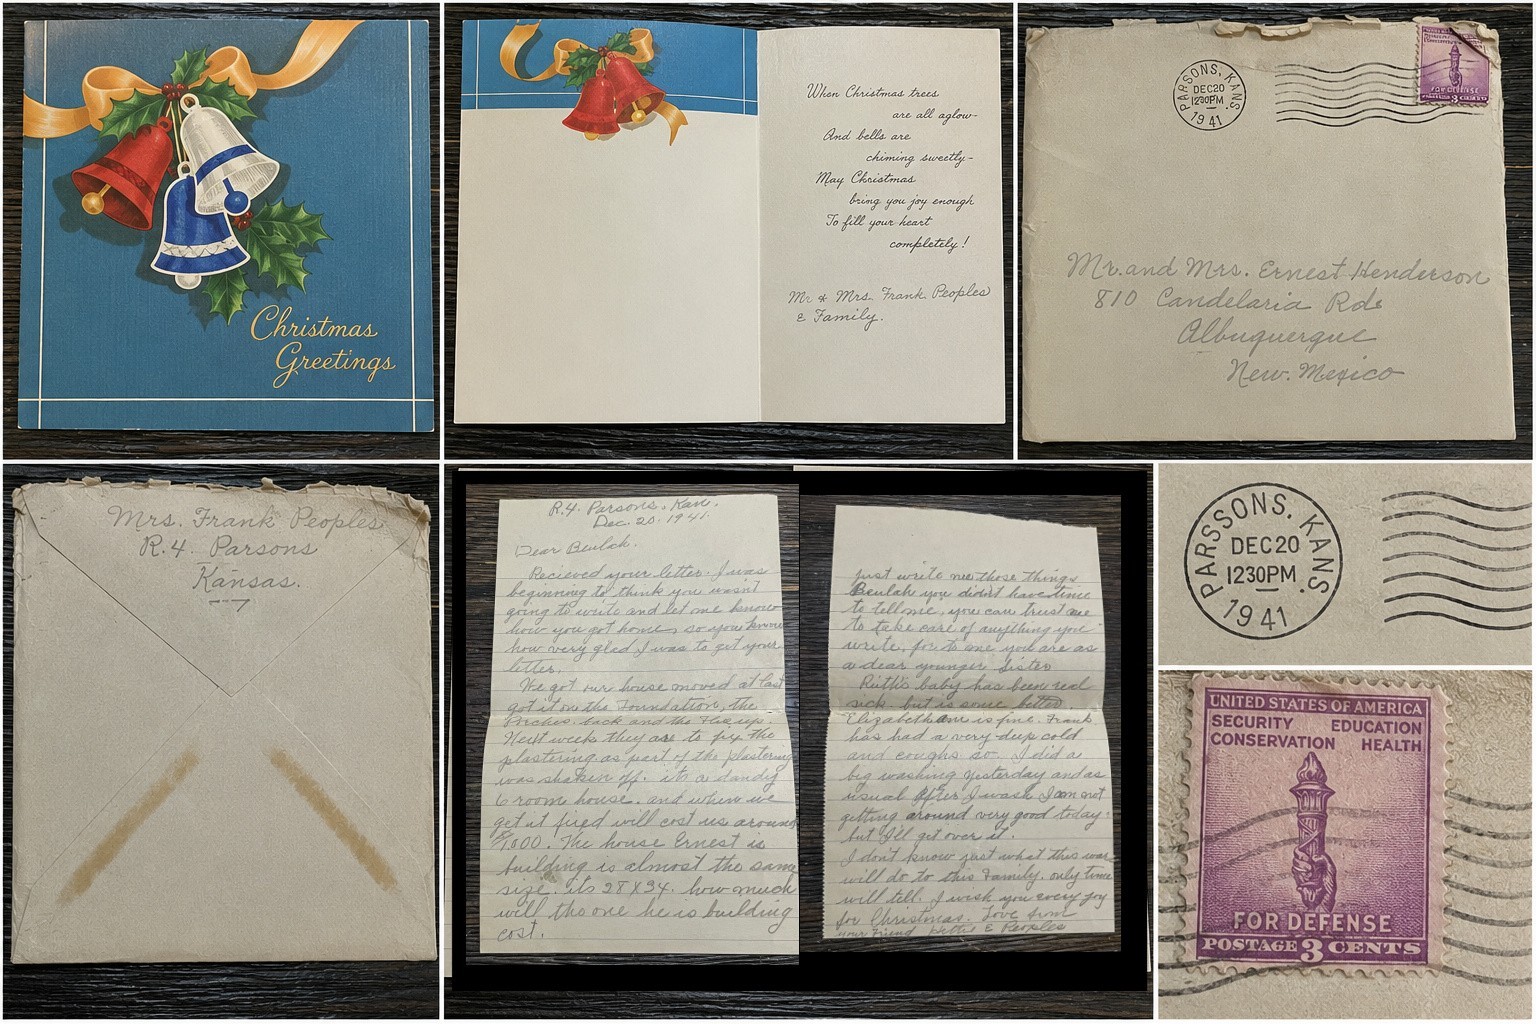 Christmas
Greetings
When Christmas trees
are all aglow-
And bells are
chiming sweetly-
May Christmas
bring you joy enough
To fill your heart
completely!
Mr & Mrs. Frank Peoples
& Family.
PARSONS, KANS.
DEC20
1230PM
1941
FOR DEFENSE
3 CENTS
Mr. and Mrs. Ernest Henderson
810 Candelaria Rd.
Albuquerque
New. Mexico
Mrs. Frank Peoples
R.4. Parsons
Kansas.
R.4. Parsons, Kan.
Dec. 20. 1941.
Dear Beulah.
Recieved your letter. I was
beginning to think you wasn't
going to write and let me know
how you got home, so you know
how very glad I was to get your
letter.
We got our house moved at last
got it on the Foundation, the
Porches, back and the Flue up.
Next week they are to fix the
plastering as part of the plastering
was shaken off. its a dandy
6 room house. and when we
get it fixed will cost us around
$1,000. The house Ernest is
building is almost the same
size. its 28 X 34. how much
will the one he is building
cost.
just write me those things
Beulah you didn't have time
to tell me, you can trust me
to take care of anything you
write, for to me you are as
a dear younger Sister
Ruth's baby has been real
sick but is some better.
Elizabeth is fine. Frank
has had a very deep cold
and coughs so. I did a
big washing yesterday and as
usual after I wash I am not
getting around very good today.
but I'll get over it.
I don't know just what this war
will do to this Family. only time
will tell. I wish you every joy
for Christmas. Love from
your Friend Hettie E Peoples
PARSSONS, KANS.
DEC20
1230PM
1941
UNITED STATES OF AMERICA
SECURITY EDUCATION
CONSERVATION HEALTH
FOR DEFENSE
POSTAGE 3 CENTS